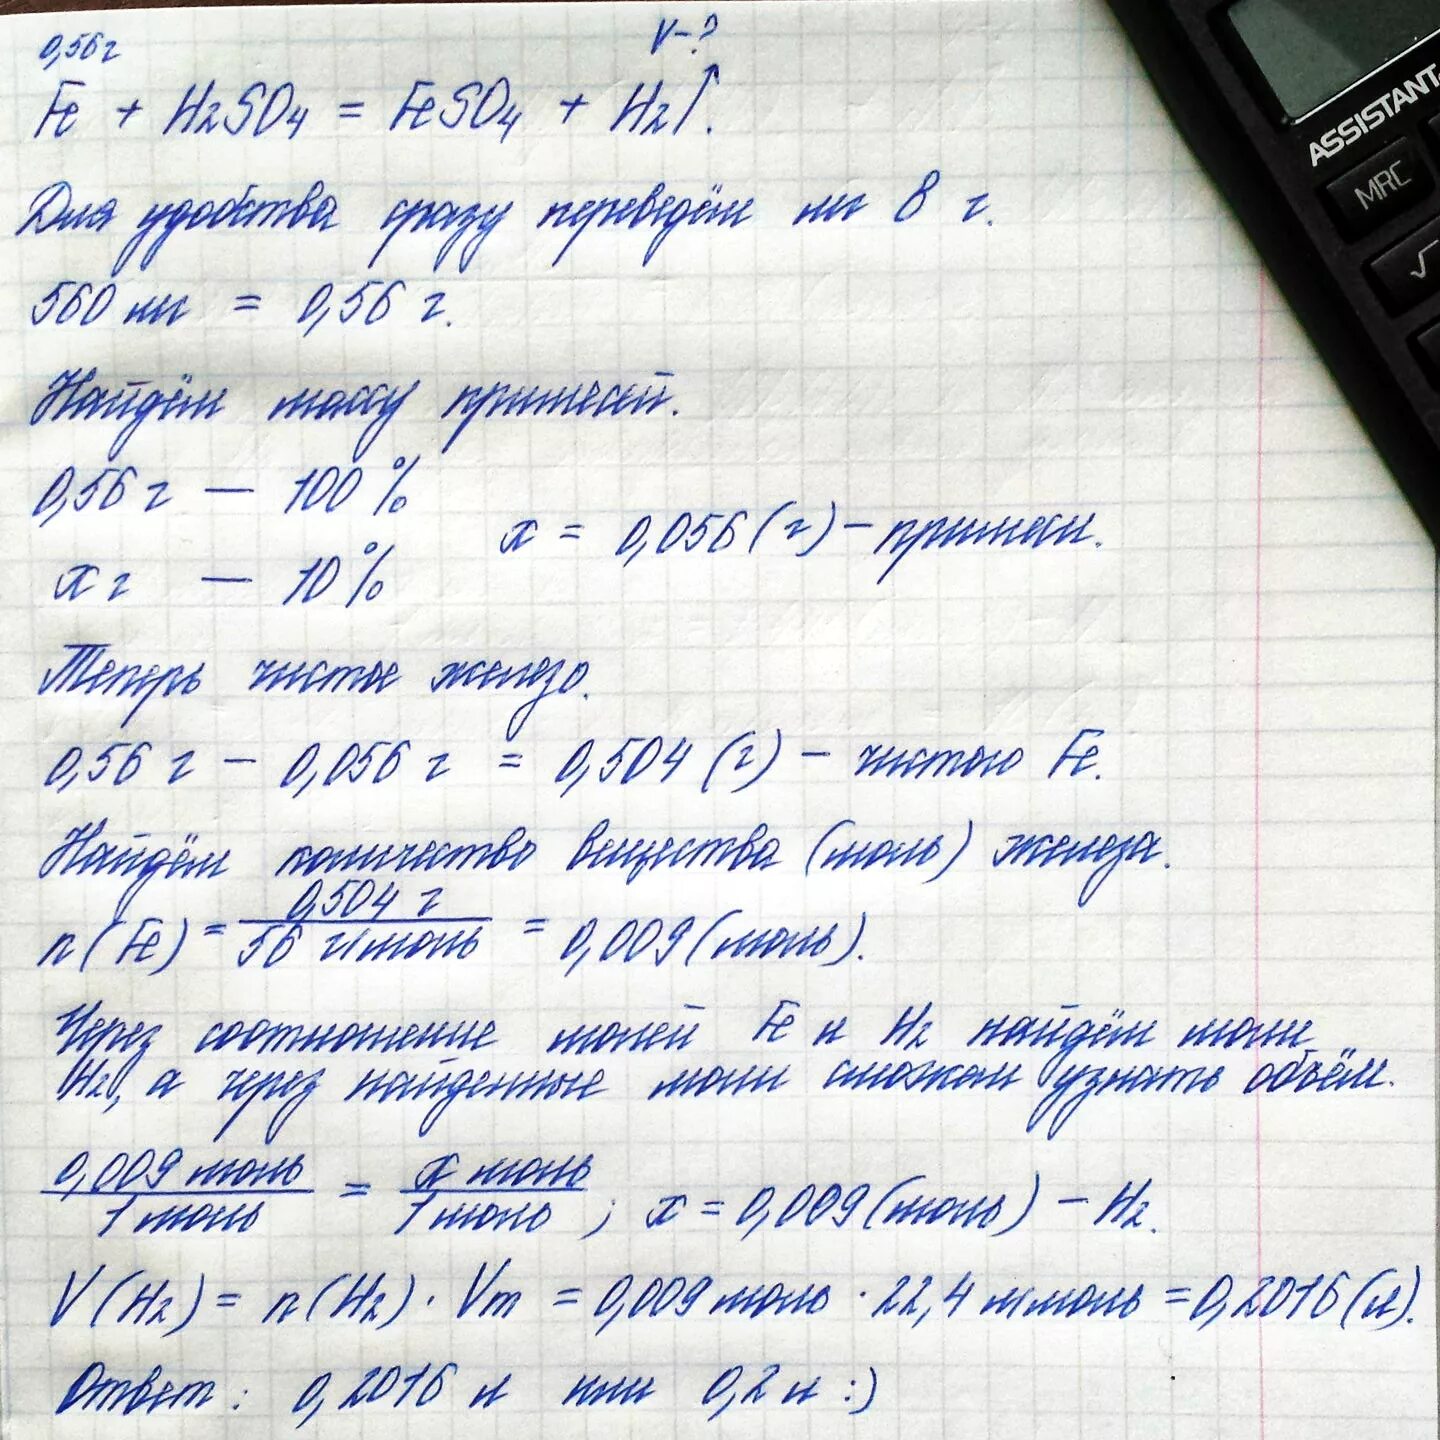 0,56 г V-?
Fe + H2SO4 = FeSO4 + H2↑.
Для удобства сразу переведём мг в г.
560 мг = 0,56 г.
Найдём массу примесей.
0,56 г — 100 %
x = 0,056 (г) – примеси.
x г — 10 %
Теперь чистое железо.
0,56 г – 0,056 г = 0,504 (г) – чистого Fe.
Найдём количество вещества (моль) железа.
n(Fe) = 0,504 г / 56 г/моль = 0,009 (моль).
Через соотношение молей Fe и H2 найдём моли
H2, а через найденные моли сможем узнать объём.
0,009 моль / 1 моль = x моль / 1 моль ; x = 0,009 (моль) – H2.
V(H2) = n(H2) · Vm = 0,009 моль · 22,4 л/моль = 0,2016 (л).
Ответ: 0,2016 л или 0,2 л :)
ASSISTANT
MRC
√